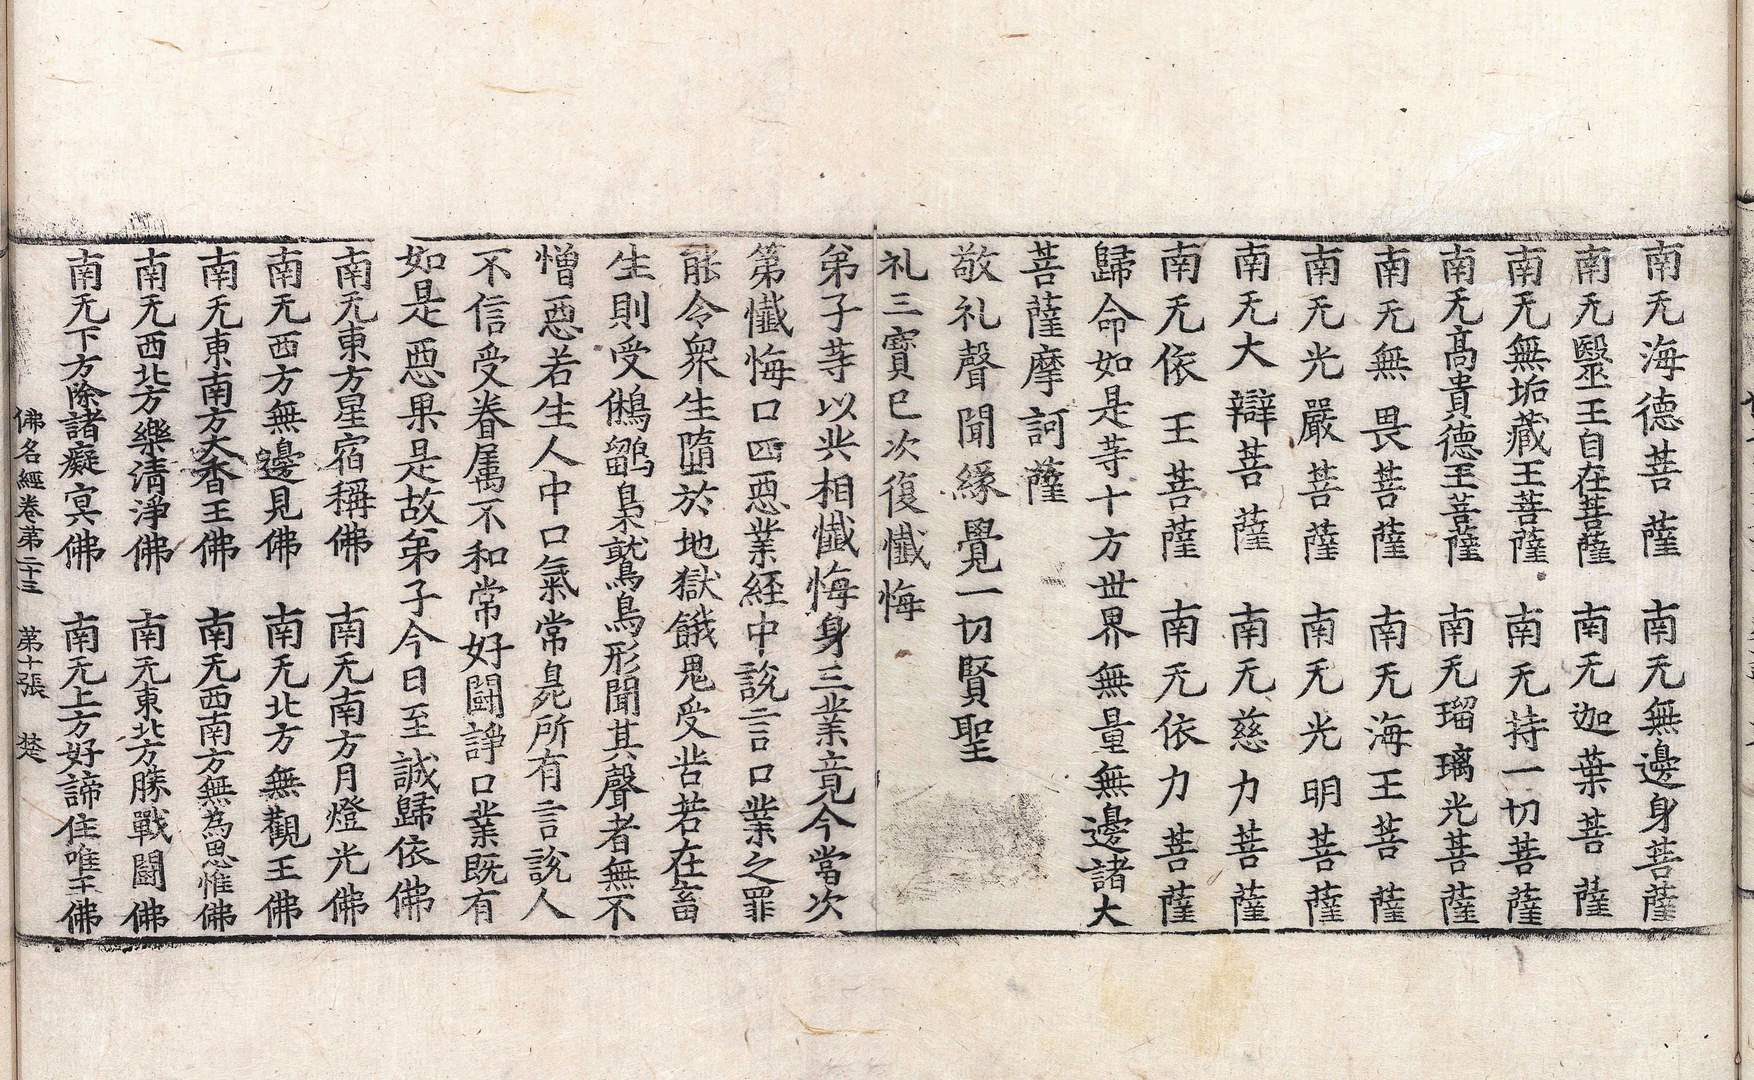 南无海德菩薩　南无無邊身菩薩
南无翳王自在菩薩　南无迦葉菩薩
南无無垢藏王菩薩　南无持一切菩薩
南无高貴德王菩薩　南无瑠璃光菩薩
南无無畏菩薩　南无海王菩薩
南无光嚴菩薩　南无光明菩薩
南无大辯菩薩　南无慈力菩薩
南无依王菩薩　南无依力菩薩
歸命如是等十方世界無量無邊諸大
菩薩摩訶薩
敬礼聲聞縁覺一切賢聖
礼三寶已次復懺悔
弟子等以此相懺悔身三業竟今當次
第懺悔口四惡業經中說言口業之罪
能令衆生墮於地獄餓鬼受苦若在畜
生則受鵂鶹梟鷲鳥形聞其聲者無不
憎惡若生人中口氣常臰所有言說人
不信受眷属不和常好鬪諍口業既有
如是惡果是故弟子今日至誠歸依佛
南无東方星宿稱佛　南无南方月燈光佛
南无西方無邊見佛　南无北方無觀王佛
南无東南方大香王佛　南无西南方無為思惟佛
南无西北方樂清淨佛　南无東北方勝戰鬪佛
南无下方除諸癡冥佛　南无上方好諦住唯王佛
佛名經卷第二十三　第十張　楚